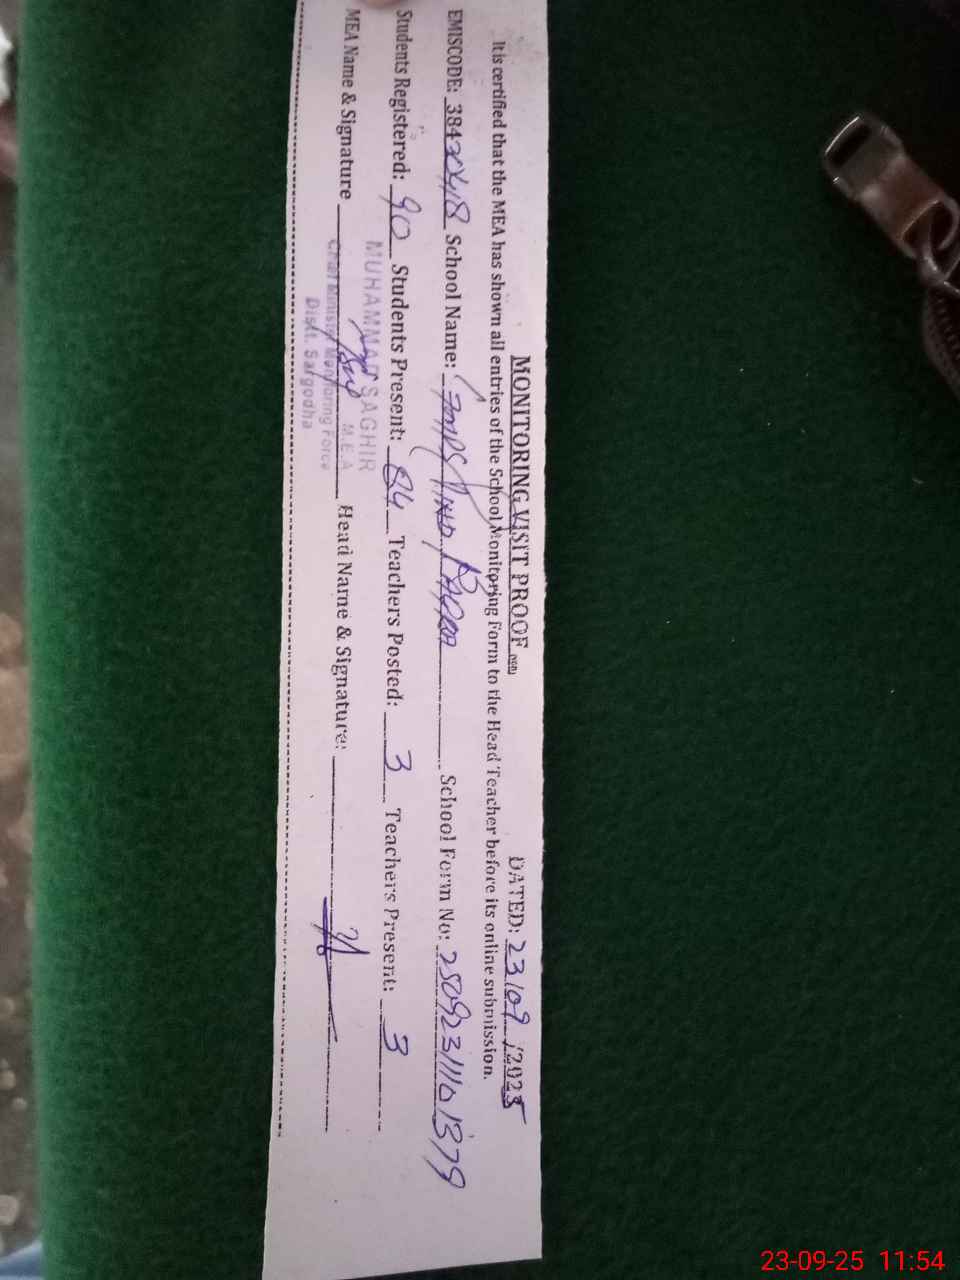 MONITORING VISIT PROOF DATED: 23/09/2025
It is certified that the MEA has shown all entries of the School Monitoring Form to the Head Teacher before its online submission.
EMISCODE: School Name: School Form No:
Students Registered: 90 Students Present: 84 Teachers Posted: 3 Teachers Present: 3
MEA Name & Signature Head Name & Signature:
MUHAMMAD SAGHIR
M.E.A
Chief Minister Monitoring Force
Distt. Sargodha
23-09-25 11:54